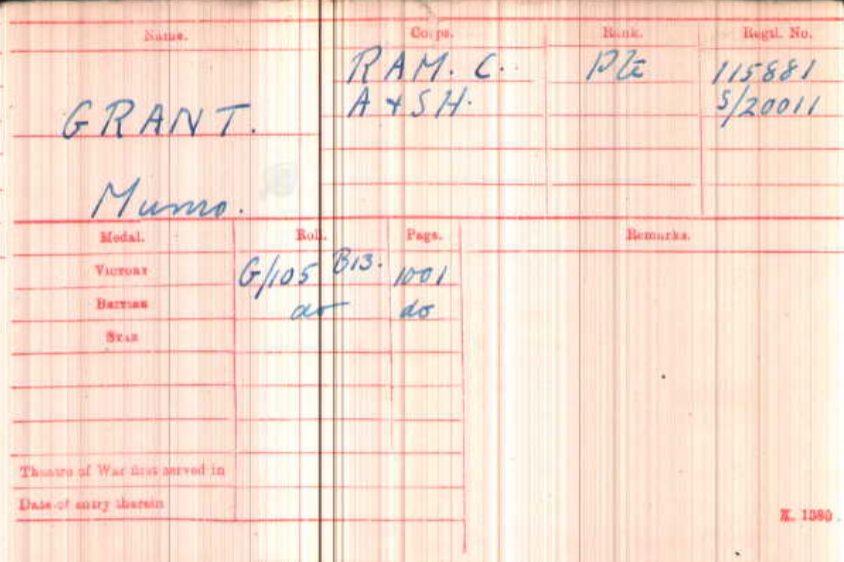 Name. Corps. Rank. Regtl. No.
R A M. C. Pte 115881
GRANT. A & S H. S/20011
Munro.
Medal. Roll. Page. Remarks.
VICTORY G/105 B13. 1001
BRITISH do do
STAR
Theatre of War first served in
Date of entry therein
K. 1380.